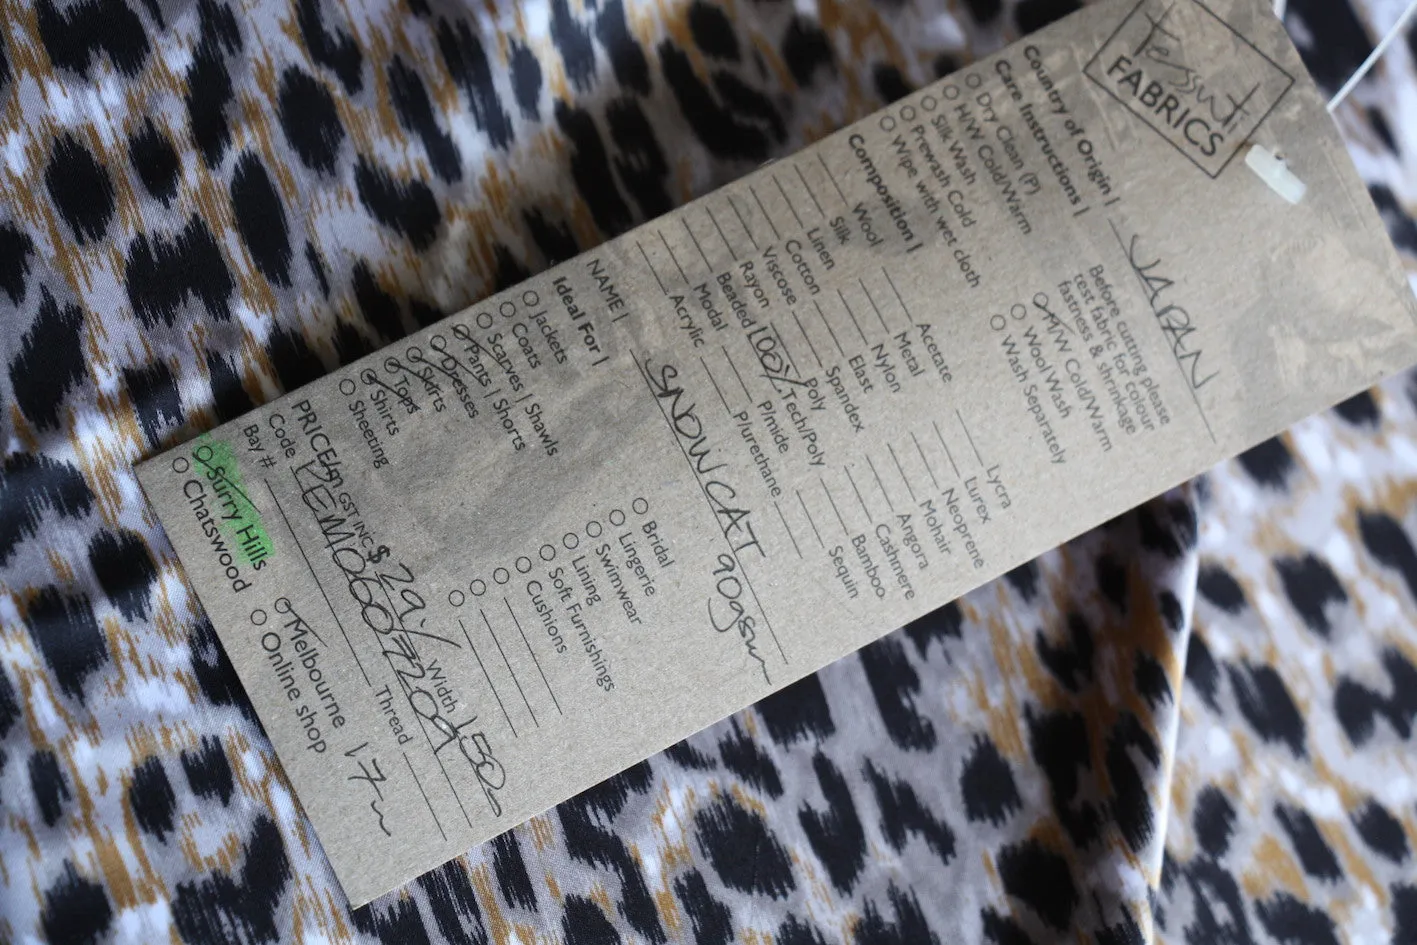 Tessuti
FABRICS
Country of Origin | JAPAN
Care Instructions |
Dry Clean (P)
H/W Cold/Warm
Silk Wash
Prewash Cold
Wipe with wet cloth
Before cutting please
test fabric for colour
fastness & shrinkage
H/W Cold/Warm
Wool Wash
Wash Separately
Composition |
Wool
Silk
Linen
Cotton
Viscose
Rayon
Beaded
Modal
Acrylic
Acetate
Metal
Nylon
Elast
Spandex
Poly
100% Tech/Poly
P/mide
P/urethane
Lycra
Lurex
Neoprene
Mohair
Angora
Cashmere
Bamboo
Sequin
NAME | SNOW CAT 90gsm
Ideal For |
Jackets
Coats
Scarves | Shawls
Pants | Shorts
Dresses
Skirts
Tops
Shirts
Sheeting
Bridal
Lingerie
Swimwear
Lining
Soft Furnishings
Cushions
PRICE/m GST INC $29/ Width 150
Code
Bay # Thread
Surry Hills
Chatswood
Melbourne 17m
Online shop